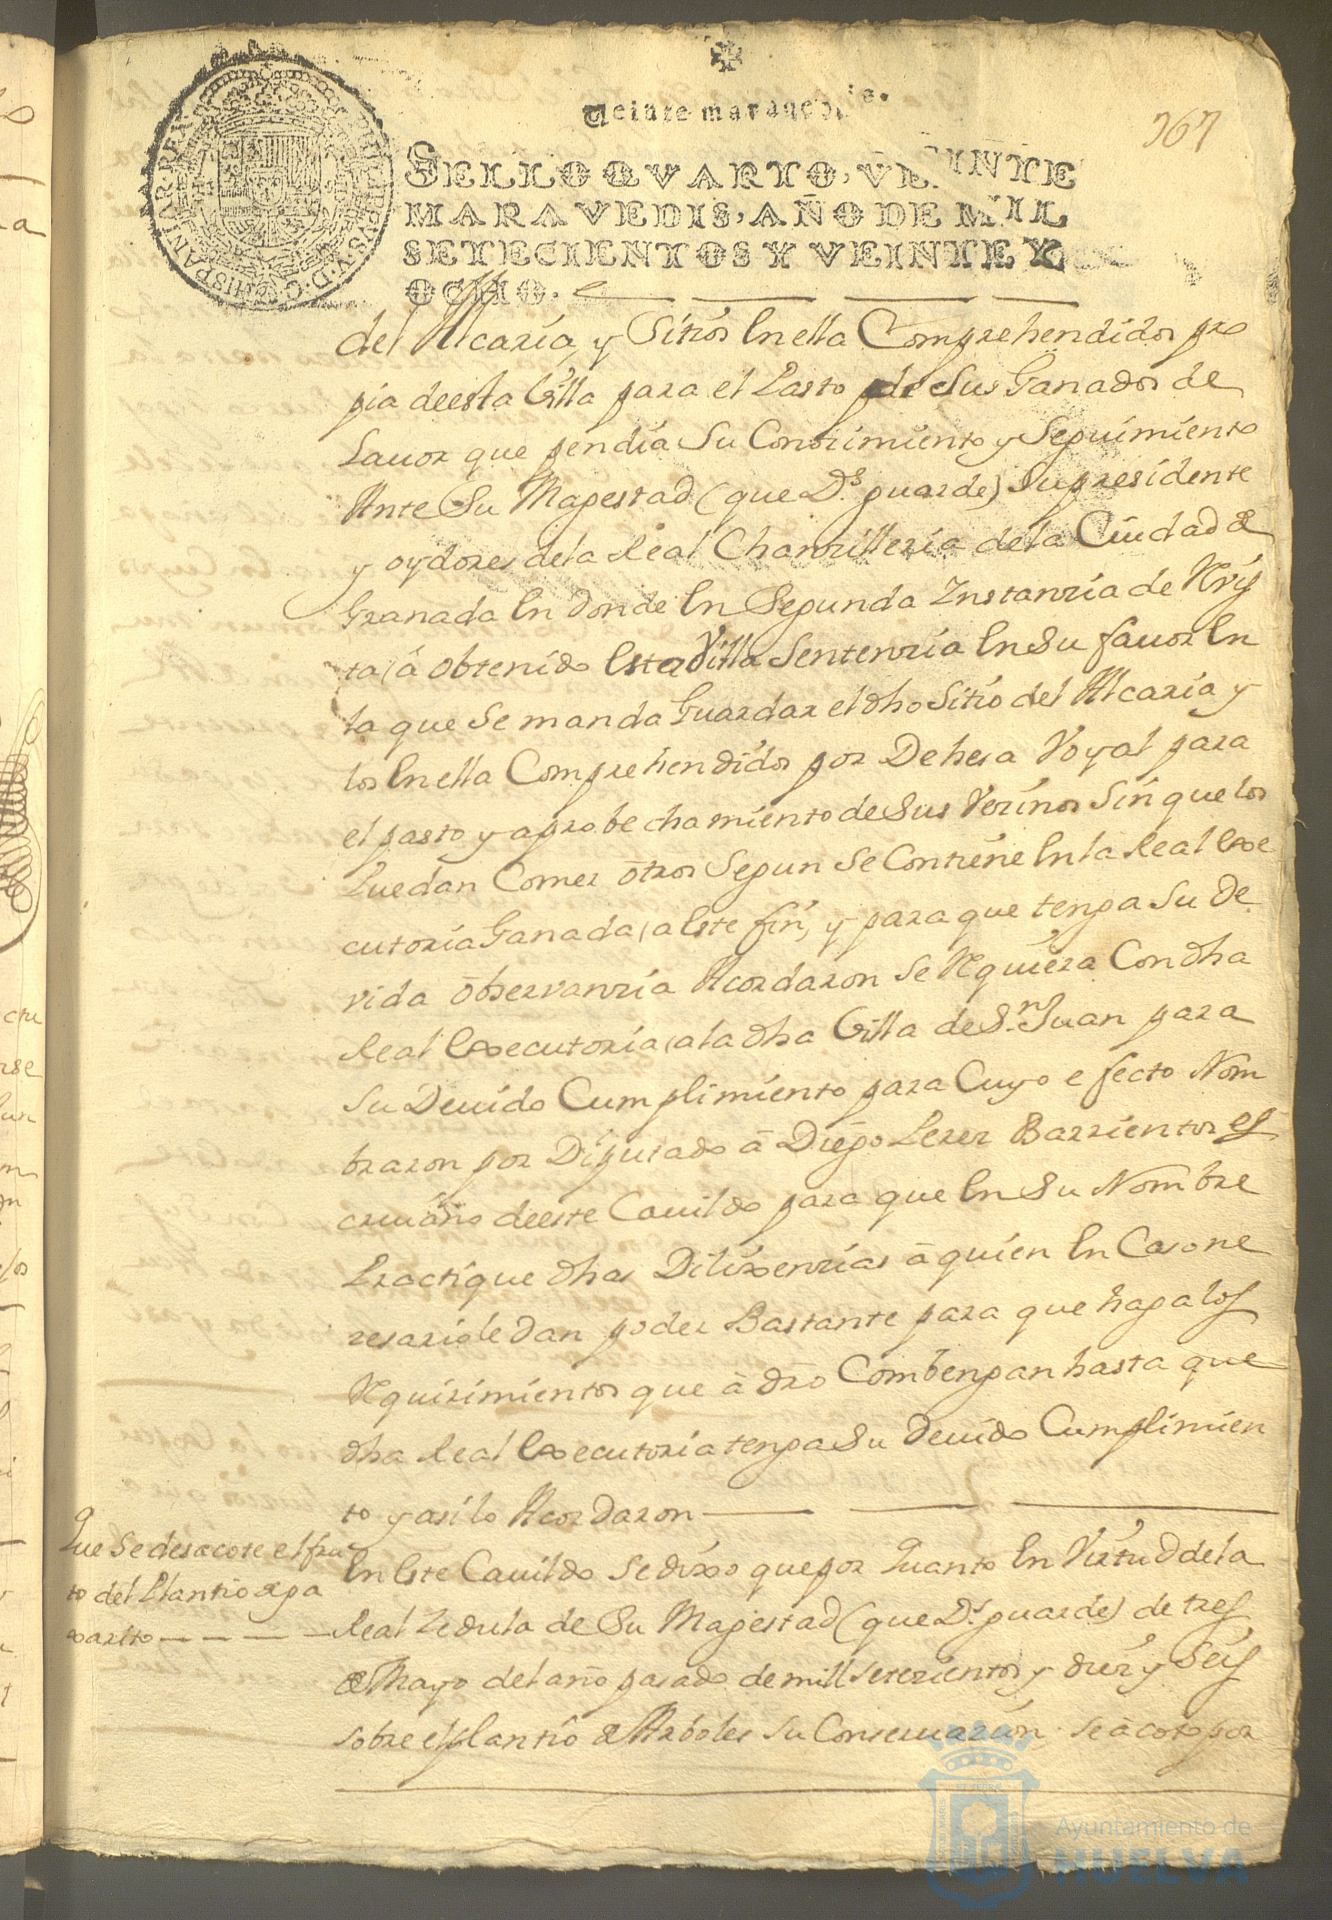 Veinte maravedis.
767
SELLO QVARTO, VEINTE
MARAVEDIS, AÑO DE MIL
SETECIENTOS Y VEINTE Y
OCHO.
PHILIPPUS V D G HISPANIAR REX
del Alcaria, y Sitios En ella Comprehendidos pro
pia deesta Villa para el Pasto de Sus Ganados de
Lavor que pendia Su Conozimiento y Seguimiento
Ante Su Magestad (que Ds. guarde) Su presidente
y oydores dela Real Chanzilleria dela Ciudad de
Granada En donde En Segunda Ynstanzia de Revis
ta, a obtenido Esta Villa Sentenzia En Su favor En
la que Se manda Guardar el dho Sitio del Alcaria y
los En ella Comprehendidos por Dehesa Voyal para
el pasto y aprobechamiento de Sus Vezinos Sin que los
Puedan Comer otros Segun Se Contiene En la Real Exe
cutoria Ganada, a Este fin, y para que tenga Su de
vida obServanzia Acordaron Se Requiera Con dha
Real Executoria, a la dha Villa de Sn. Juan para
Su Devido Cumplimiento para Cuyo efecto Nom
braron por Diputado â Diego Perez Barrientos es
crivano deeste Cavildo para que En Su Nombre
Practique dhas Dilixenzias â quien En Caso ne
zesario le dan poder Bastante para que haga los
Requirimientos que â dro Combengan hasta que
dha Real Executoria tenga Su Devido Cumplimien
to y asi lo Acordaron
Que Se desacote el fru
to del Plantio de pa
xarito
En Este Cavildo Se dixo que por Quanto En Virtud dela
Real Zedula de Su Magestad (que Ds. guarde) de tres
de Mayo del año pasado de mill setezientos y diez y Seis
sobre el plantio de Arboles Su Conservazion se acoto por
Ayuntamiento de
HUELVA